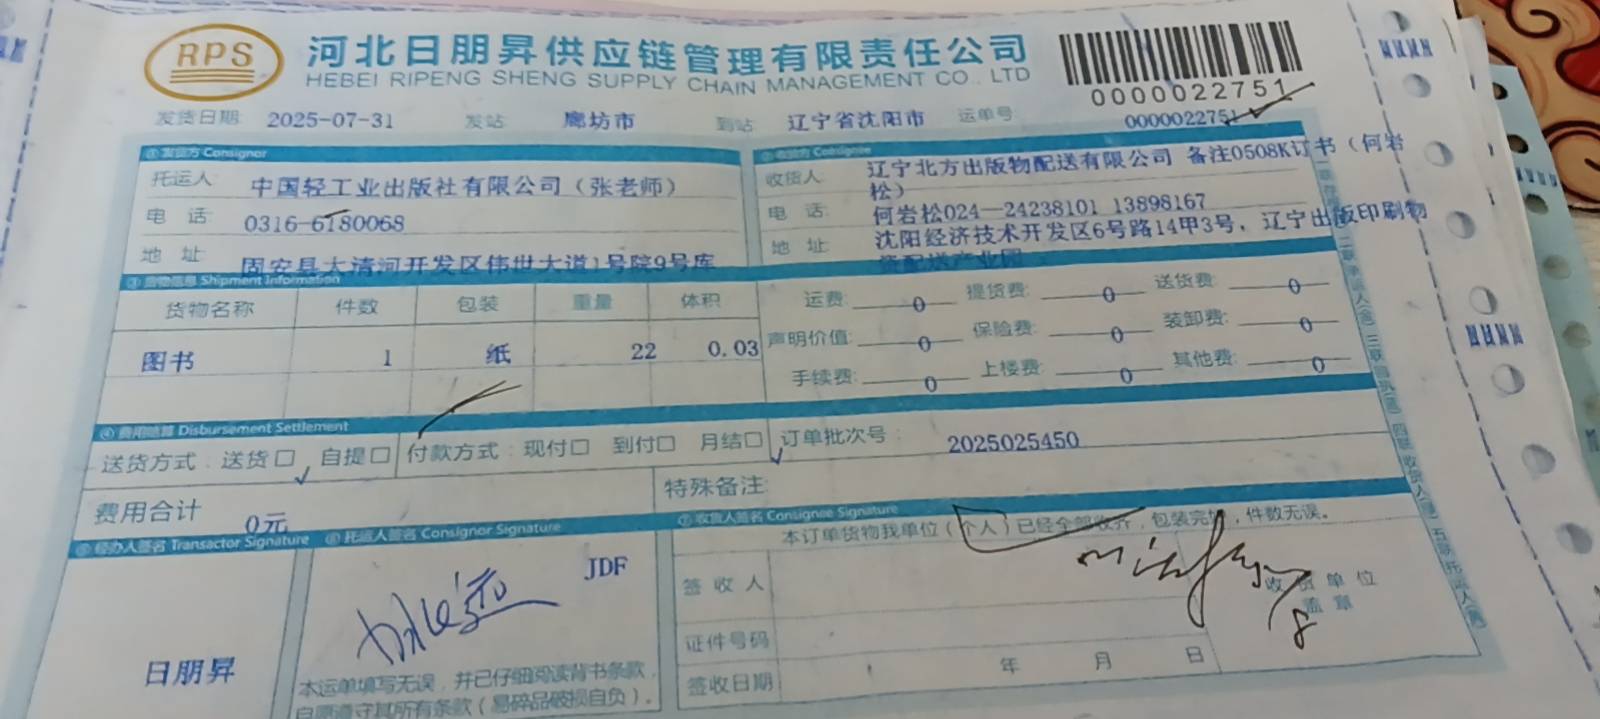 RPS
河北日朋昇供应链管理有限责任公司
HEBEI RIPENG SHENG SUPPLY CHAIN MANAGEMENT CO., LTD
0000022751
发货日期: 2025-07-31 发站: 廊坊市 到站: 辽宁省沈阳市 运单号 0000022751
①发货方 Consignor
托运人 中国轻工业出版社有限公司（张老师）
电 话 0316-6180068
地 址 固安县大清河开发区伟世大道1号院9号库
②收货方 Consignee
收货人 辽宁北方出版物配送有限公司 备注0508K订书（何岩
松）
电 话 何岩松024—24238101 13898167
地 址 沈阳经济技术开发区6号路14甲3号, 辽宁出版印刷物
资配送产业园
③货物信息 Shipment Information
货物名称 件数 包装 重量 体积
图书 1 纸 22 0.03
运费: 0 提货费: 0 送货费: 0
声明价值: 0 保险费: 0 装卸费: 0
手续费: 0 上楼费: 0 其他费: 0
④费用结算 Disbursement Settlement
送货方式: 送货□ 自提□ 付款方式: 现付□ 到付□ 月结□ 订单批次号: 2025025450
费用合计 0元
特殊备注:
⑤经办人签名 Transactor Signature
日朋昇
⑥托运人签名 Consignor Signature
JDF
本运单填写无误，并已仔细阅读背书条款，
自愿遵守其所有条款（易碎品破损自负）。
⑦收货人签名 Consignee Signature
本订单货物我单位（个人）已经全部收齐，包装完好，件数无误。
签 收 人
收 货 单 位
盖 章
证件号码
签收日期 年 月 日